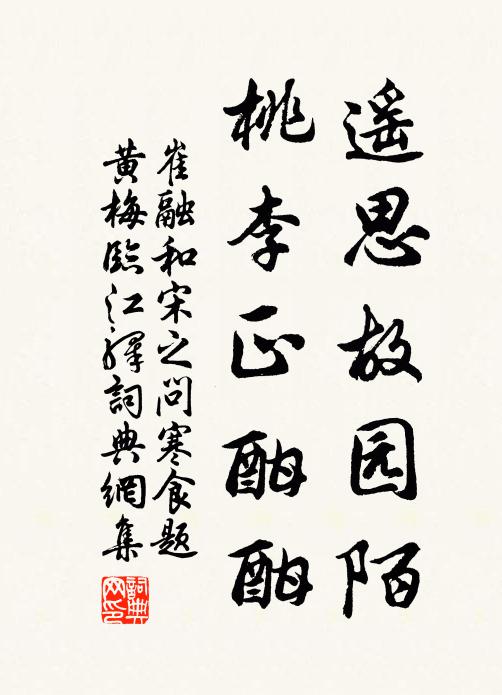 遥思故园陌
桃李正酣酣
崔融和宋之问寒食题
黄梅臨江驛詞典網集
詞典
网印